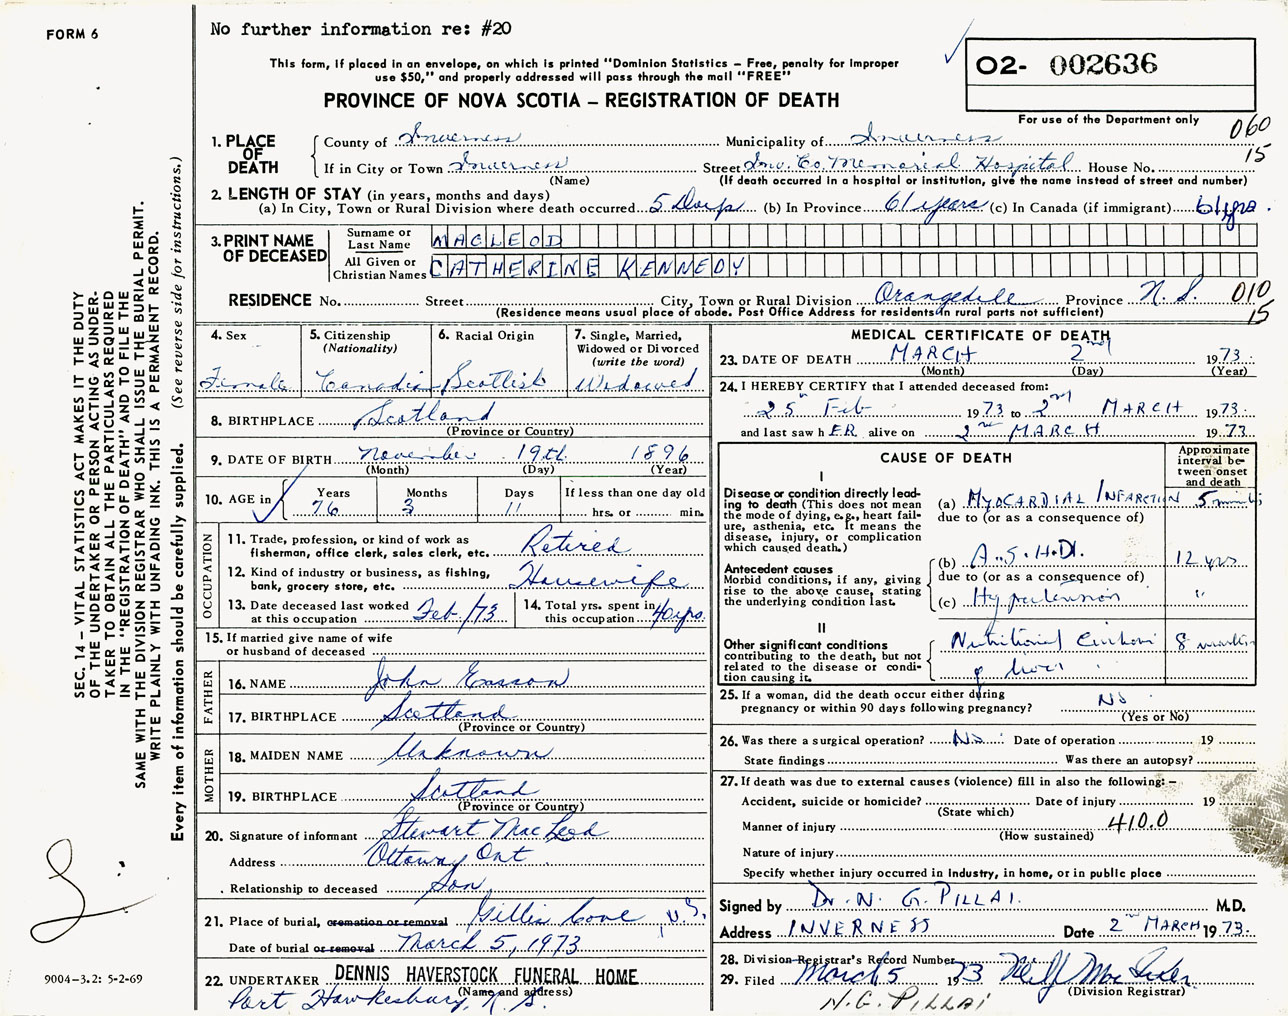 FORM 6
No further information re: #20
This form, if placed in an envelope, on which is printed "Dominion Statistics – Free, penalty for improper
use $50," and properly addressed will pass through the mail "FREE"
PROVINCE OF NOVA SCOTIA – REGISTRATION OF DEATH
02- 002636
For use of the Department only
060
15
1. PLACE OF DEATH
County of Inverness Municipality of Inverness
If in City or Town Inverness Street Inv. Co. Memorial Hospital House No.
(Name) (If death occurred in a hospital or institution, give the name instead of street and number)
2. LENGTH OF STAY (in years, months and days)
(a) In City, Town or Rural Division where death occurred 5 Days (b) In Province 61 years (c) In Canada (if immigrant) 61 yrs.
3. PRINT NAME OF DECEASED
Surname or Last Name MACLEOD
All Given or Christian Names CATHERINE KENNEDY
RESIDENCE No. Street City, Town or Rural Division Orangedale Province N.S. 010
(Residence means usual place of abode. Post Office Address for residents in rural parts not sufficient) 15
4. Sex
Female
5. Citizenship
(Nationality)
Canadian
6. Racial Origin
Scottish
7. Single, Married,
Widowed or Divorced
(write the word)
Widowed
8. BIRTHPLACE Scotland
(Province or Country)
9. DATE OF BIRTH November 19th 1896
(Month) (Day) (Year)
10. AGE in Years Months Days If less than one day old
76 3 11 hrs. or min.
OCCUPATION
11. Trade, profession, or kind of work as
fisherman, office clerk, sales clerk, etc. Retired
12. Kind of industry or business, as fishing,
bank, grocery store, etc. Housewife
13. Date deceased last worked
at this occupation Feb/73
14. Total yrs. spent in
this occupation 40 yrs.
15. If married give name of wife
or husband of deceased
FATHER
16. NAME John Easson
17. BIRTHPLACE Scotland
(Province or Country)
MOTHER
18. MAIDEN NAME Unknown
19. BIRTHPLACE Scotland
(Province or Country)
20. Signature of informant Stewart MacLeod
Address Ottawa, Ont
Relationship to deceased Son
21. Place of burial, cremation or removal Gillis Cove, N.S.
Date of burial or removal March 5, 1973
22. UNDERTAKER DENNIS HAVERSTOCK FUNERAL HOME
(Name and address)
Port Hawkesbury, N.S.
MEDICAL CERTIFICATE OF DEATH
23. DATE OF DEATH MARCH 2nd 1973
(Month) (Day) (Year)
24. I HEREBY CERTIFY that I attended deceased from:
25th Feb 1973 to 2nd MARCH 1973
and last saw hER alive on 2nd MARCH 1973
CAUSE OF DEATH
Approximate interval between onset and death
I
Disease or condition directly leading to death (This does not
mean the mode of dying, e.g., heart failure, asthenia, etc. It means the
disease, injury, or complication
which caused death.)
(a) MYOCARDIAL INFARCTION 5 minuts
due to (or as a consequence of)
Antecedent causes
Morbid conditions, if any, giving
rise to the above cause, stating
the underlying condition last.
(b) A.S.H.D. 12 yrs
due to (or as a consequence of)
(c) Hypertension "
II
Other significant conditions
contributing to the death, but not
related to the disease or condition causing it.
Nutritional Cirrhosis 8 months
of liver
25. If a woman, did the death occur either during
pregnancy or within 90 days following pregnancy? No
(Yes or No)
26. Was there a surgical operation? No Date of operation 19
State findings Was there an autopsy?
27. If death was due to external causes (violence) fill in also the following: –
Accident, suicide or homicide? Date of injury 19
(State which)
Manner of injury 410.0
(How sustained)
Nature of injury
Specify whether injury occurred in industry, in home, or in public place
Signed by Dr. N. G. PILLAI. M.D.
Address INVERNESS Date 2nd MARCH 1973.
28. Division Registrar's Record Number
29. Filed March 5 1973
(Division Registrar)
N.G. PILLAI
SEC. 14 – VITAL STATISTICS ACT MAKES IT THE DUTY
OF THE UNDERTAKER OR PERSON ACTING AS UNDER-
TAKER TO OBTAIN ALL THE PARTICULARS REQUIRED
IN THE "REGISTRATION OF DEATH" AND TO FILE THE
SAME WITH THE DIVISION REGISTRAR WHO SHALL ISSUE THE BURIAL PERMIT.
WRITE PLAINLY WITH UNFADING INK. THIS IS A PERMANENT RECORD.
Every item of information should be carefully supplied. (See reverse side for instructions.)
9004-3.2: 5-2-69